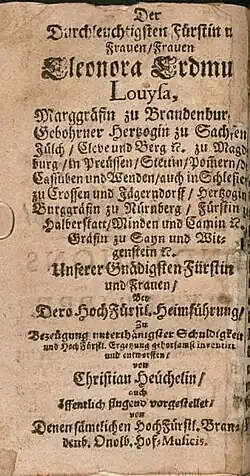 Der
Durchleuchtigsten Fürstin u
Frauen/Frauen
Eleonora Erdmu
Louysa,
Marggräfin zu Brandenbur,
Gebohrner Hertzogin zu Sachsen
Jülch / Cleve und Berg &c. zu Magd
burg / in Preüssen / Stettin / Pomern / d
Cassuben und Wenden / auch in Schlesien
zu Crossen und Jägerndorff / Hertzogin
Burggräfin zu Nürnberg / Fürstin
Halberstatt / Minden und Camin &c.
Gräfin zu Sayn und Wit-
genstein &c.
Unserer Gnädigsten Fürstin
und Frauen /
Bey
Dero HochFürstl. Heimführung /
Zu
Bezeügung unterthänigster Schuldigkeit
und HochFürstl. Ergetzung gehorsamst inventirt
und entworffen /
von
Christian Heüchelin /
auch
öffentlich singend vorgestellet /
von
Denen sämtlichen HochFürstl. Bran-
denb. Onolb. Hof-Musicis.